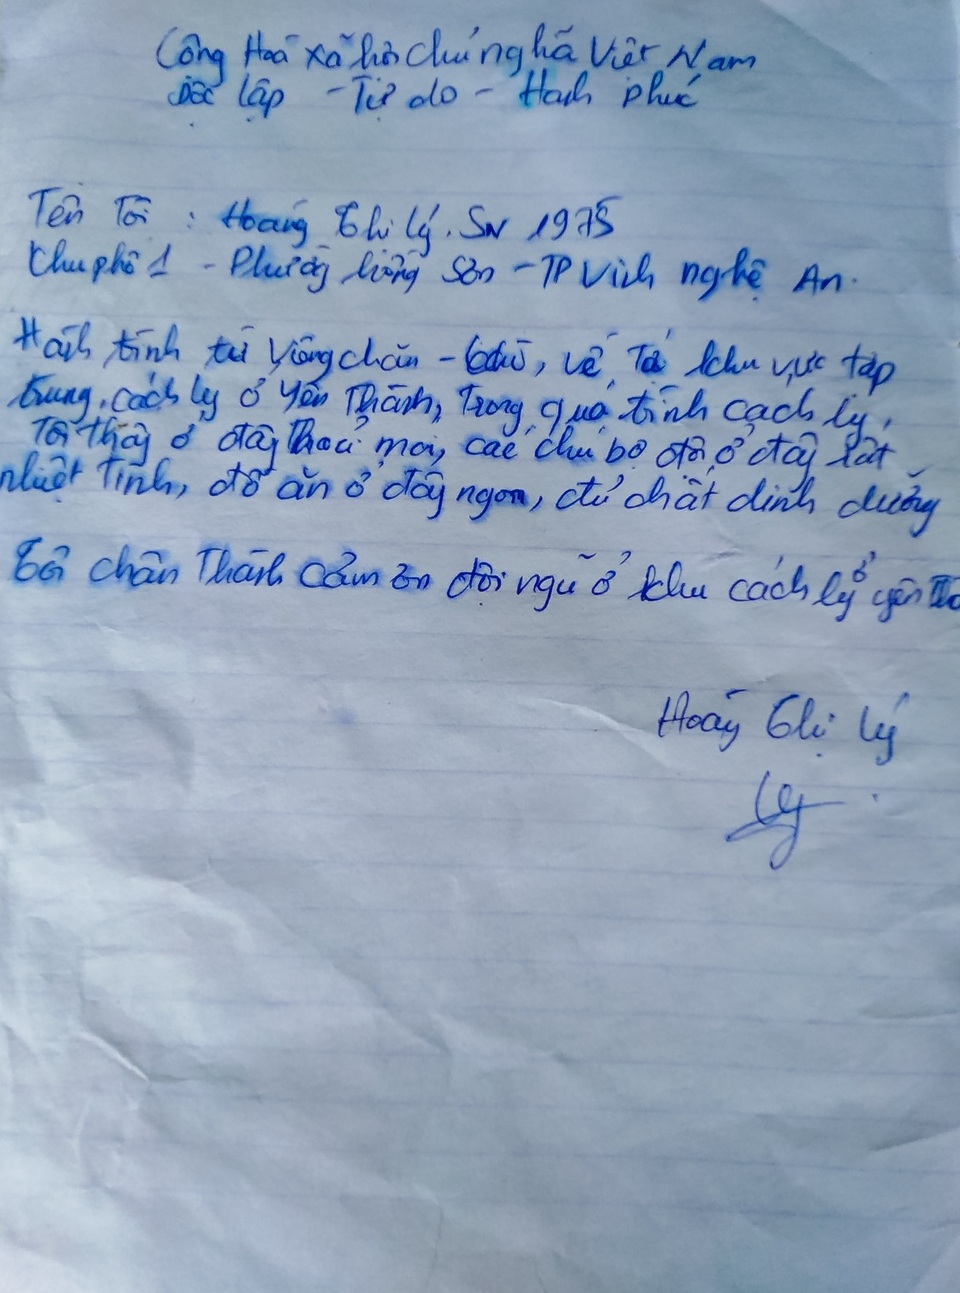 Cộng Hoà xã hội chủ nghĩa Việt Nam
Độc lập - Tự do - Hạnh phúc
Tên Tôi : Hoàng Thị Lý. SN 1975
Khu phố 1 - Phường Hồng Sơn - TP Vinh nghệ An.
Hành trình từ Viêng chăn - Lào, về Tới khu vực tập
trung, cách ly ở Yên Thành, Trong quá trình cách ly,
Tôi thấy ở đây thoải mái, các chú bộ đội ở đây rất
nhiệt tình, đồ ăn ở đây ngon, đủ chất dinh dưỡng
Tôi chân Thành cảm ơn đội ngũ ở khu cách ly ở yên
Hoàng Thị Lý
Lý